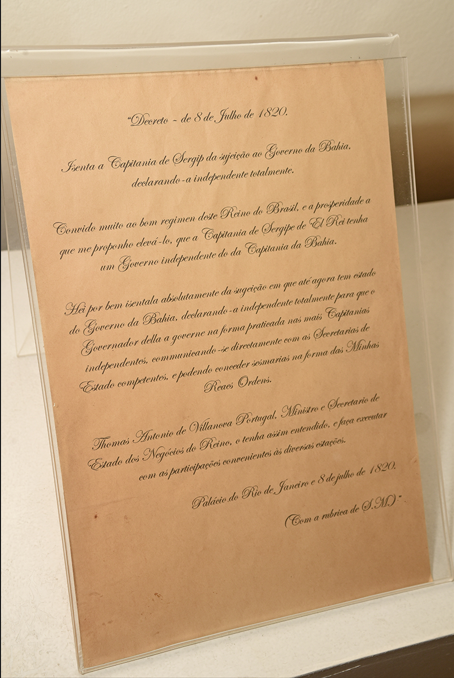 "Decreto - de 8 de Julho de 1820.
Isenta a Capitania de Sergip da sujeição ao Governo da Bahia,
declarando-a independente totalmente.
Convido muito ao bom regimen deste Reino do Brasil, e a prosperidade a
que me proponho elevá-lo, que a Capitania de Sergipe de El Rei tenha
um Governo independente do da Capitania da Bahia.
Hei por bem isentala absolutamente da sugeição em que até agora tem estado
do Governo da Bahia, declarando-a independente totalmente para que o
Governador della a governe na forma praticada nas mais Capitanias
independentes, communicando-se directamente com as Secretarias de
Estado competentes, e podendo conceder sesmarias na forma das Minhas
Reaes Ordens.
Thomas Antonio de Villanova Portugal, Ministro e Secretario de
Estado dos Negócios do Reino, o tenha assim entendido, e faça executar
com as participações convenientes às diversas estações.
Palácio do Rio de Janeiro e 8 de julho de 1820.
(Com a rubrica de S.M.)"